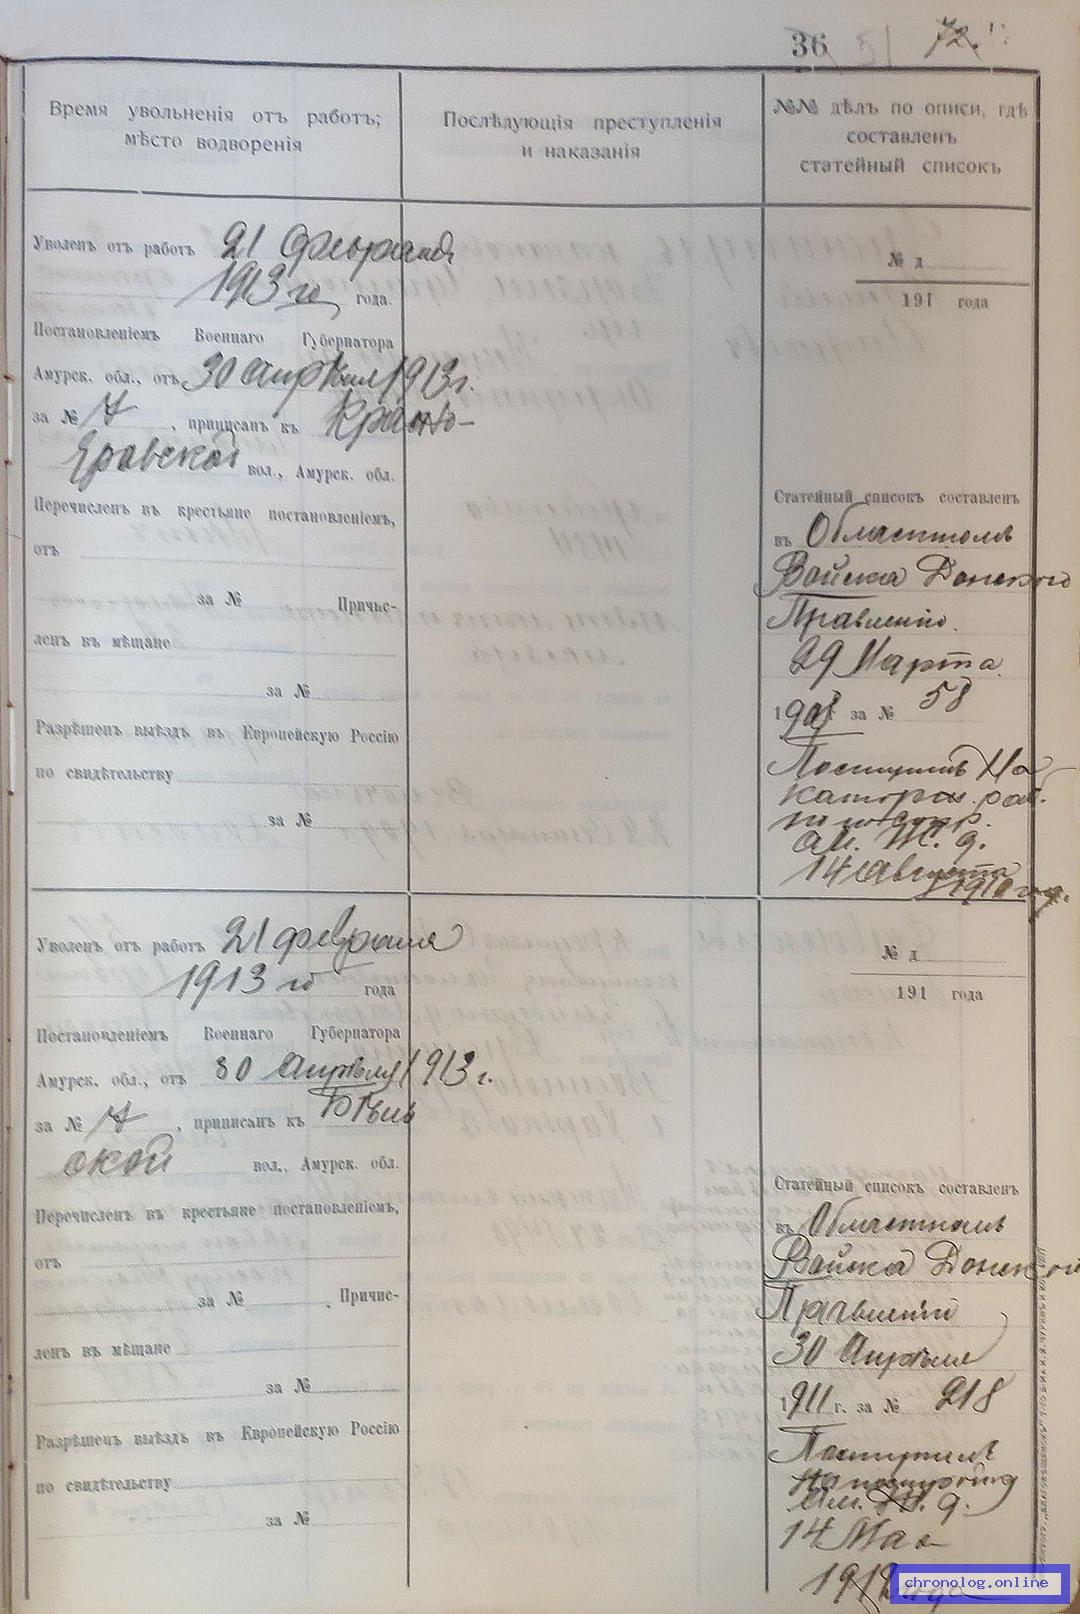 36 51 72.
Время увольненія отъ работъ;
мѣсто водворенія
Послѣдующія преступленія
и наказанія
№№ дѣлъ по описи, гдѣ
составленъ
статейный списокъ
Уволенъ отъ работъ 21 февраля
1913 го года.
Постановленіемъ Военнаго Губернатора
Амурск. обл., отъ 30 апрѣля 1913 г.
за № 7, приписанъ къ Красно-
Яровской вол., Амурск. обл.
Перечисленъ въ крестьяне постановленіемъ,
отъ
за № Причис-
ленъ въ мѣщане
за №
Разрѣшенъ выѣздъ въ Европейскую Россію
по свидѣтельству
за №
№ д
191 года
Статейный списокъ составленъ
въ Областномъ
Войска Донского
Правленіи.
29 Марта
1908 г. за № 58
Поступилъ На
каторжн. раб.
по постр.
Ам. Ж. д.
14 Августа
1910 год.
Уволенъ отъ работъ 21 февраля
1913 го года
Постановленіемъ Военнаго Губернатора
Амурск. обл., отъ 30 Апрѣля 1913 г.
за № 7, приписанъ къ Бѣль
ской вол., Амурск. обл.
Перечисленъ въ крестьяне постановленіемъ,
отъ
за № . Причис-
ленъ въ мѣщане
за №
Разрѣшенъ выѣздъ въ Европейскую Россію
по свидѣтельству
за №
№ д
191 года
Статейный списокъ составленъ
въ Областномъ
Войска Донской
Правленіи
30 Апрѣля
1911 г. за № 218
Поступилъ
на постройку
Ам. Ж. д.
14 Мая
1912 года
chronolog.online